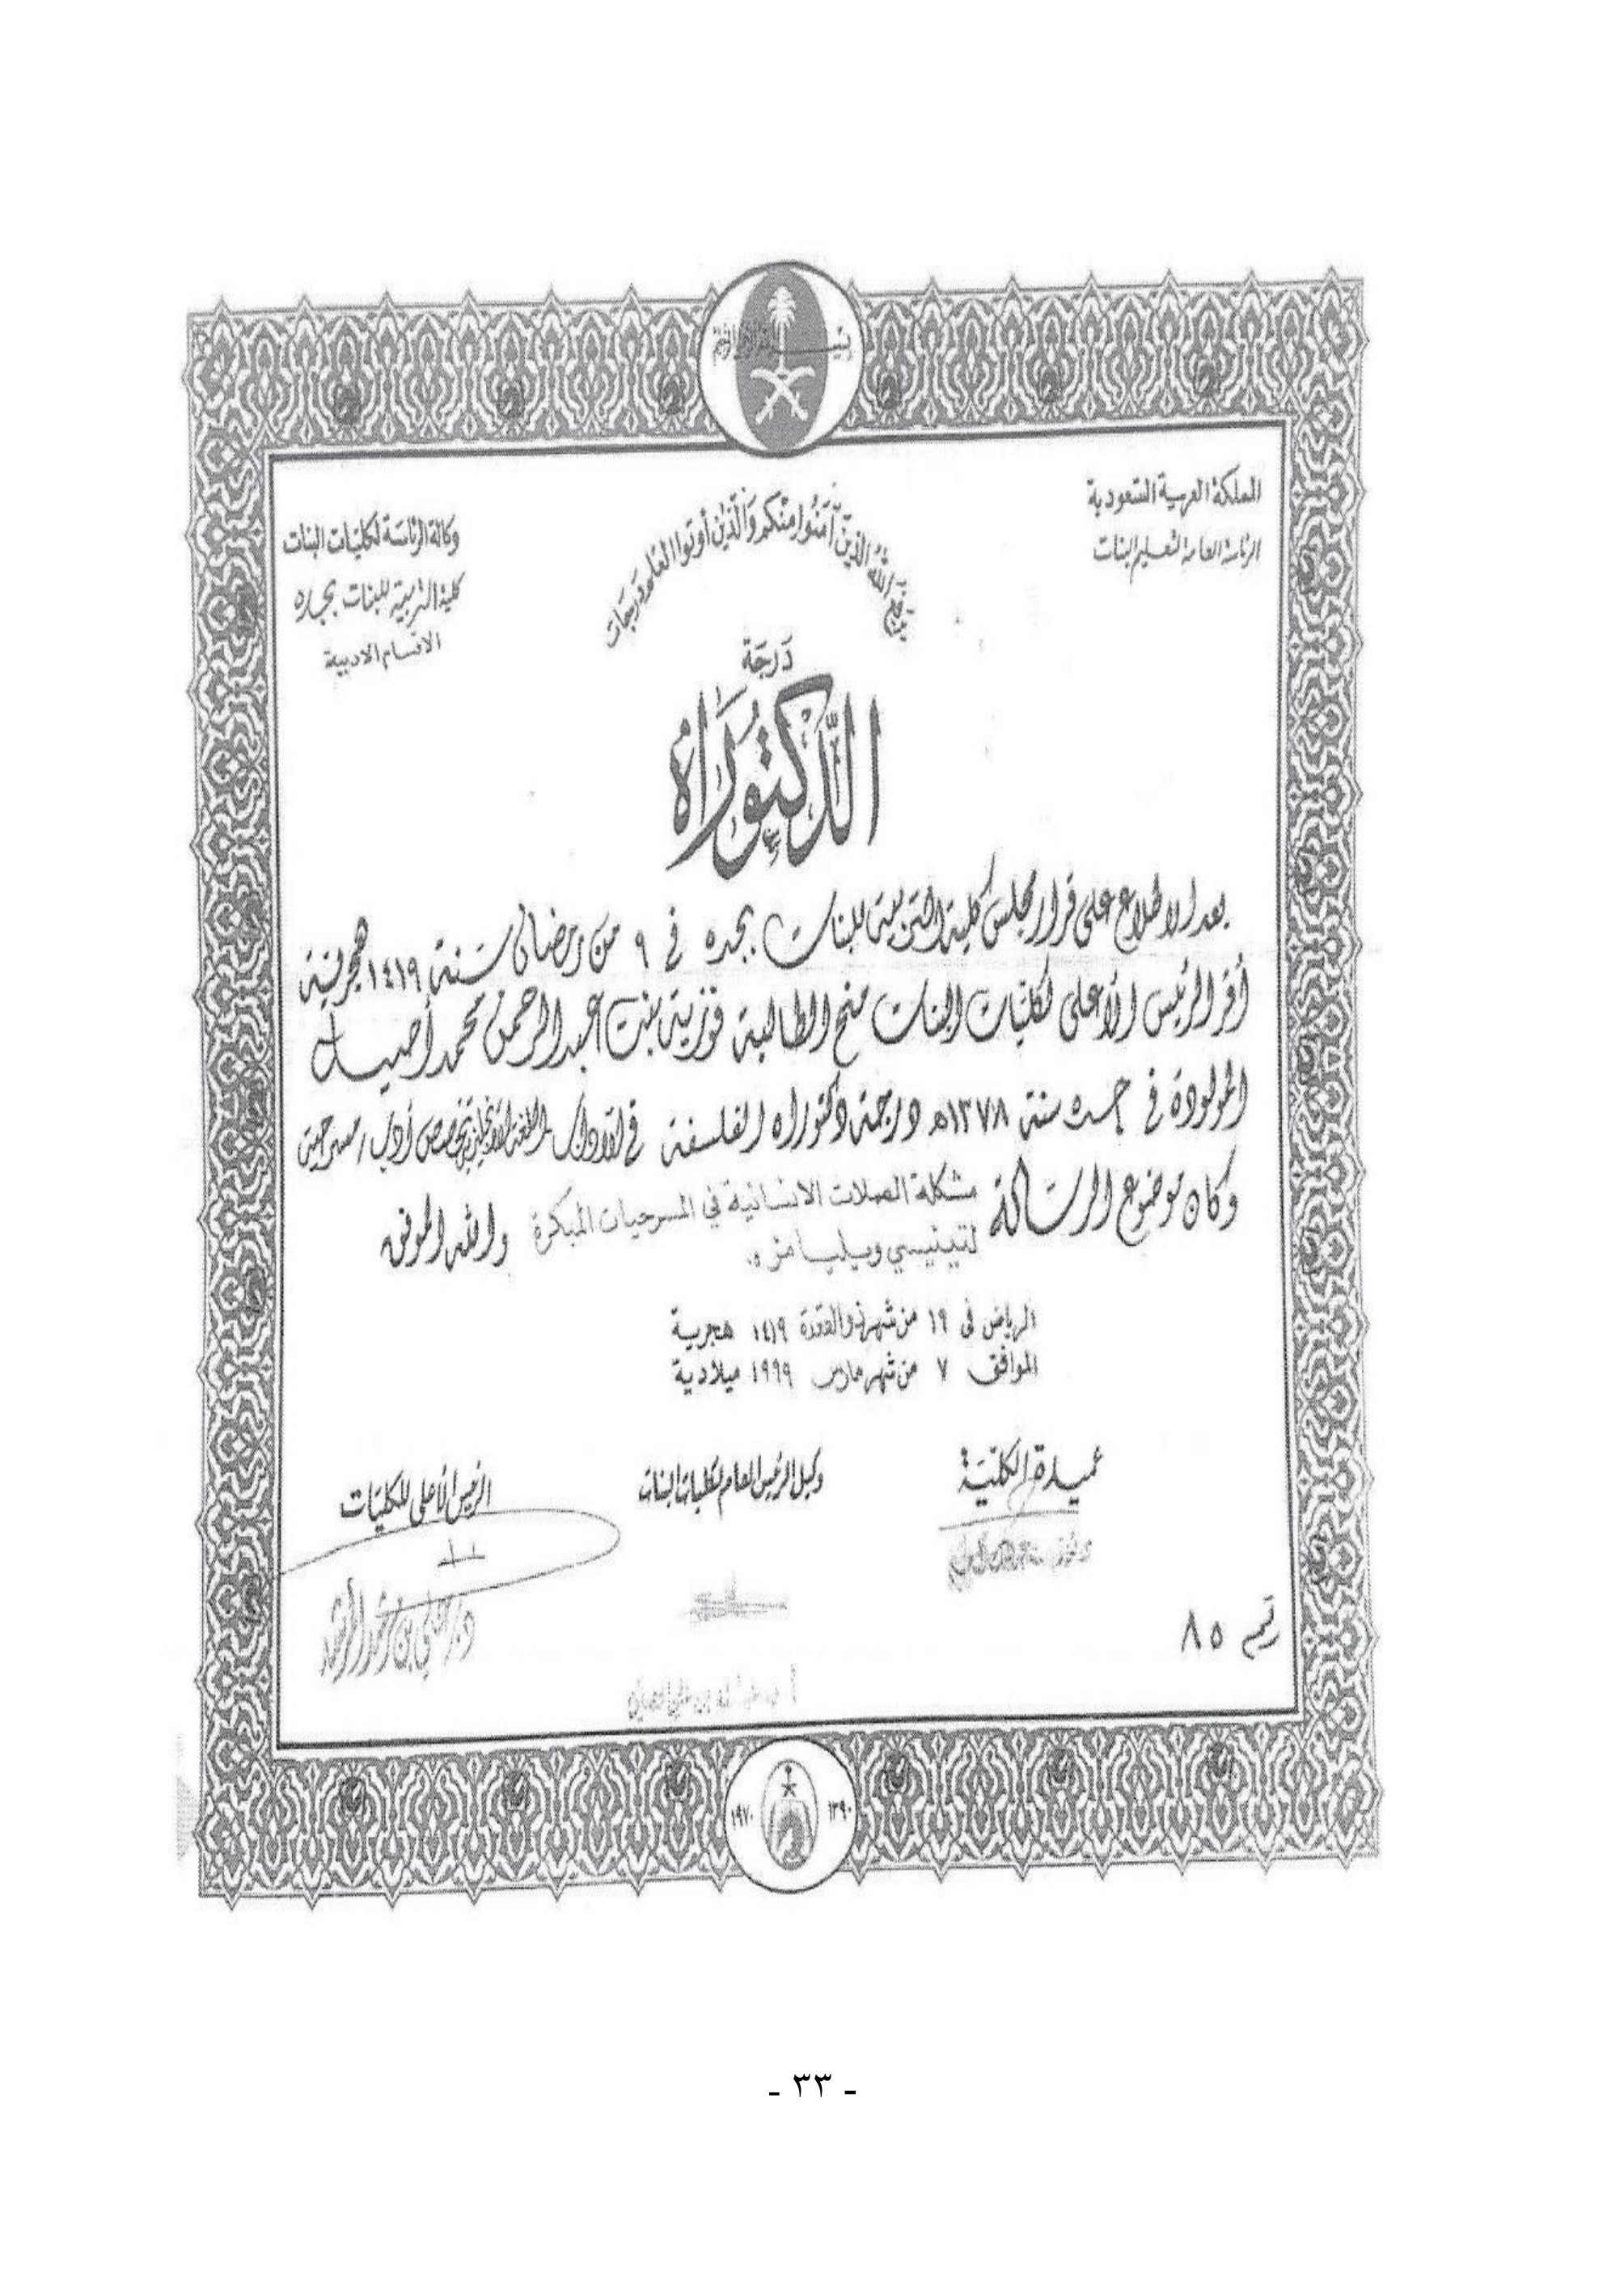 بسم الله الرحمن الرحيم
المملكة العربية السعودية
الرئاسة العامة لتعليم البنات
وكالة الرئاسة لكليات البنات
كلية التربية للبنات بجده
الاقسام الادبية
يرفع الله الذين آمنوا منكم والذين أوتوا العلم درجات
درجة
الدكتوراه
بعد الاطلاع على قرار مجلس كلية التربية للبنات بجده في ٩ من رمضان سنة ١٤١٩ هجرية
أقر الرئيس الأعلى لكليات البنات منح الطالبة فوزية بنت عبدالرحمن محمد أصيل
المولودة في سنة ١٣٧٨هـ درجة دكتوراه الفلسفة في الآداب اللغة الانجليزية تخصص أدب / مسرحية
وكان موضوع الرسالة مشكلة الصلات الانسانية في المسرحيات المبكرة
لتينيسي ويليامز . والله الموفق
الرياض في ١٩ من شهر ذو القعدة ١٤١٩ هجرية
الموافق ٧ من شهر مارس ١٩٩٩ ميلادية
عميدة الكلية
وكيل الرئيس العام لكليات البنات
الرئيس الأعلى للكليات
د. علي بن مرشد المرشد
رقم ٨٥
١٣٩٠ ١٩٧٠
- ٣٣ -